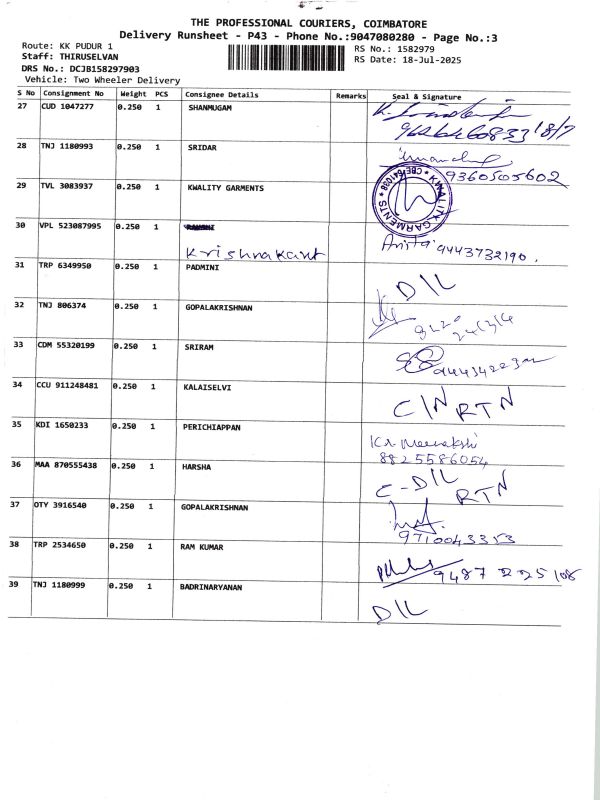 THE PROFESSIONAL COURIERS, COIMBATORE
Delivery Runsheet - P43 - Phone No.:9047080280 - Page No.:3
Route: KK PUDUR 1
RS No.: 1582979
Staff: THIRUSELVAN
RS Date: 18-Jul-2025
DRS No.: DCJB158297903
Vehicle: Two Wheeler Delivery
S No Consignment No Weight PCS Consignee Details Remarks Seal & Signature
27 CUD 1047277 0.250 1 SHANMUGAM
18/7
28 TNJ 1180993 0.250 1 SRIDAR
9360505602
29 TVL 3083937 0.250 1 KWALITY GARMENTS
KWALITY GARMENTS
CBE-641038
30 VPL 523087995 0.250 1
Krishnakant
Anita 9443732190.
31 TRP 6349950 0.250 1 PADMINI
D/L
32 TNJ 806374 0.250 1 GOPALAKRISHNAN
33 CDM 55320199 0.250 1 SRIRAM
34 CCU 911248481 0.250 1 KALAISELVI
C/N RTN
35 KDI 1650233 0.250 1 PERICHIAPPAN
Kr. Meenakshi
8825586054
36 MAA 870555438 0.250 1 HARSHA
C-D/L RTN
37 OTY 3916540 0.250 1 GOPALAKRISHNAN
9710043353
38 TRP 2534650 0.250 1 RAM KUMAR
9487 225108
39 TNJ 1180999 0.250 1 BADRINARYANAN
D/L